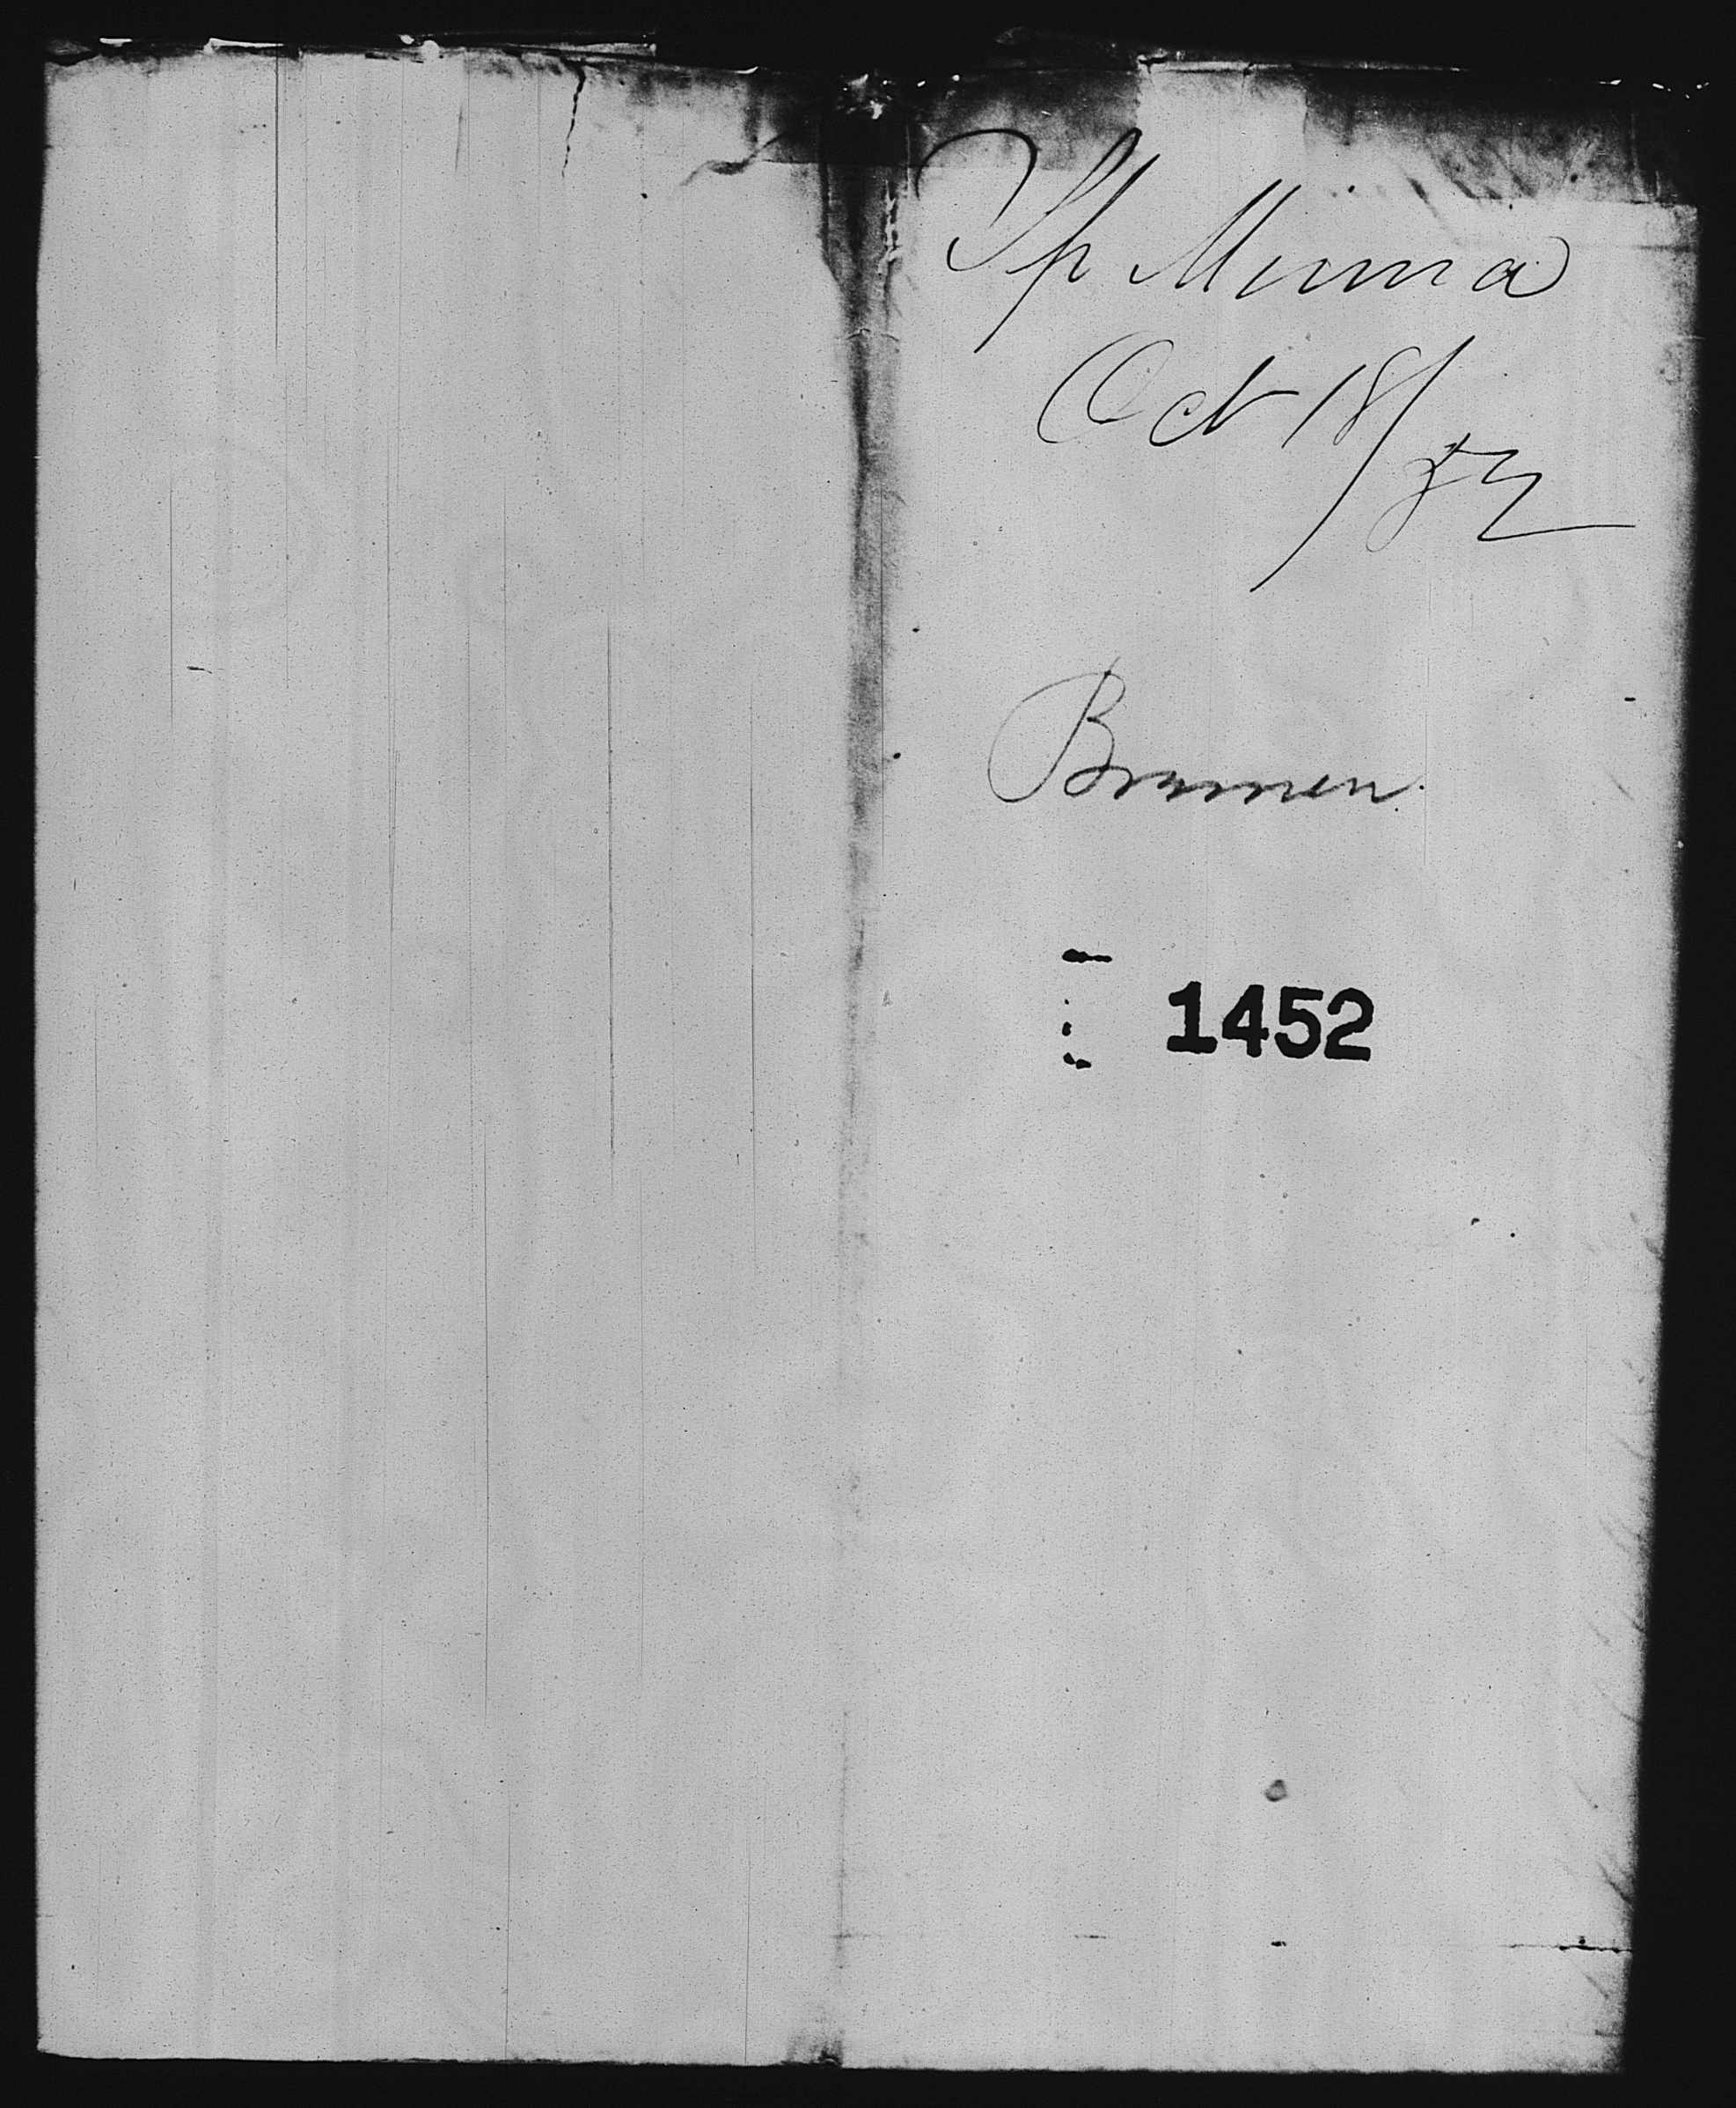 Sh Minna
Oct 18/52
Bremen
1452